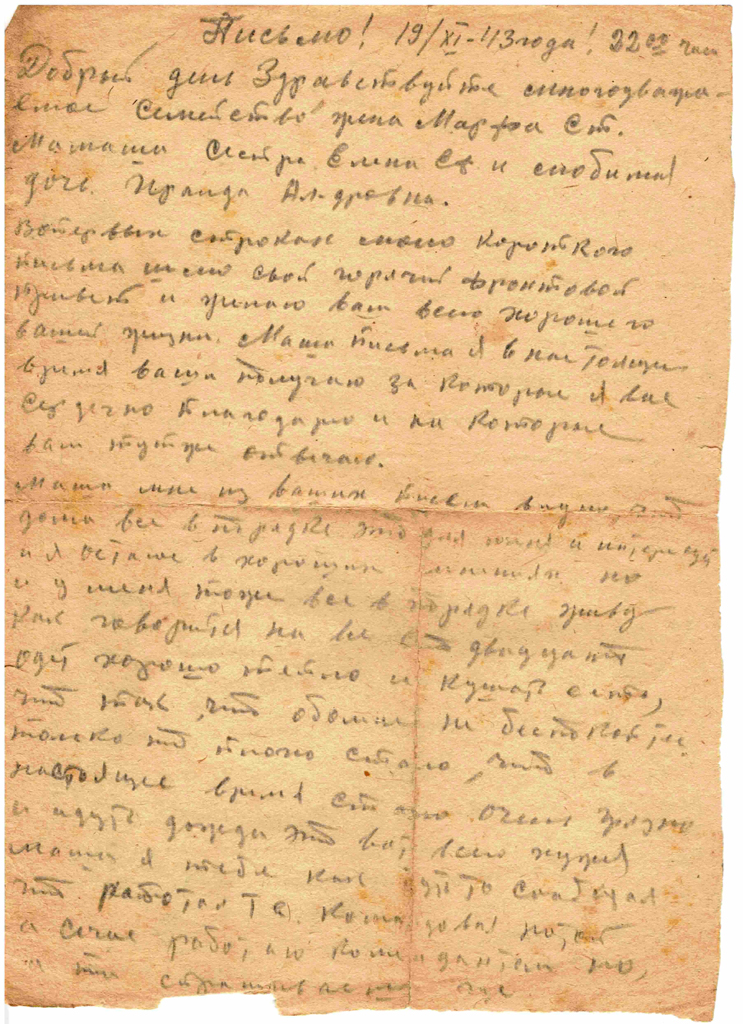 Письмо! 19/XI-43 года! 22 00 час
Добрый день Здравствуйте многоуважа-
емое семейство жена Марфа Ст.
Мамаша Сестра Елена Ст и любимая
дочь Ираида Ал-дровна.
Вопервых строках моего короткого
письма шлю свой горячий фронтовой
привет и желаю вам всего хорошего
вашей жизни. Маша письма я в настоящие
время ваши получаю за которые я вас
сердечно благодарю и на которые
вам тутже отвечаю.
Маша мне из ваших писем видно, что
дома все в порядке это для меня и интересует
и я остаюс в хороших мнениях но
и у меня тоже все в порядке живу
как говорится на все сто двадцать
одет хорошо тепло и кушать есть,
что так, что обомне не беспокойтес
только то плохо стало, что в
настоящее время стало очень грязно
и идут дожди это вот всего хужея
Маша я тебе как будто сообщал
что работал командовал ротой
а сечас работаю комендантом но,
а ты спрашиваеш где